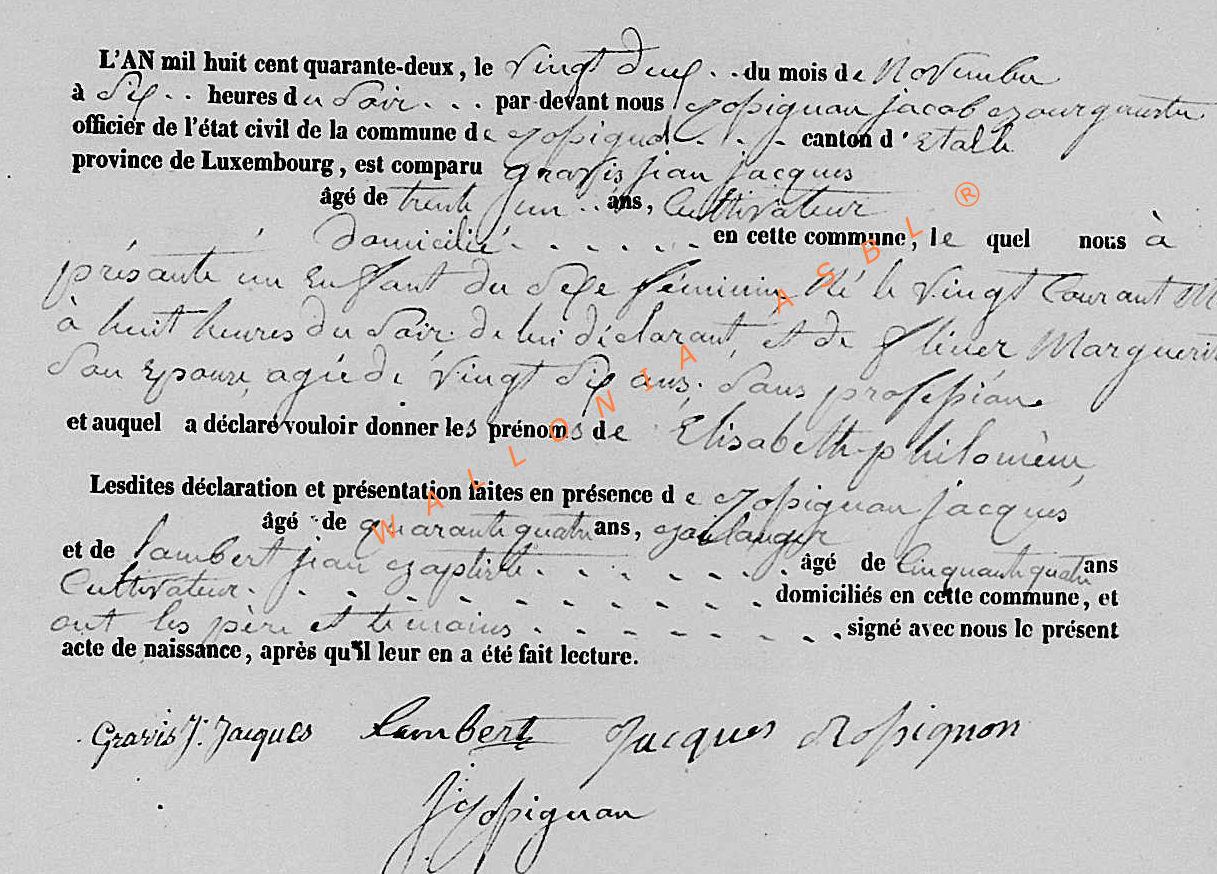 L'AN mil huit cent quarante-deux, le vingt deux .. du mois de Novembre
à Six .. heures du Soir ... par-devant nous Rossignon jacob bourguemstre
officier de l'état civil de la commune de Rossignol . . . canton d'Etalle
province de Luxembourg, est comparu gravis jean jacques
âgé de trente un .. ans, Cultivateur
Domicilié . . . . . en cette commune, le quel nous à
présante un Enfant du Sexe féminin Né le vingt Courant
à huit heures du Soir. de lui déclarant, et de Marguerit
Son Epouse, agée de vingt Six ans, Sans profession
et auquel a déclaré vouloir donner les prénoms de Elisabeth philomène,
Lesdites déclaration et présentation faites en présence de Rossignon jacques
âgé de quarante quatre ans, Boulanger
et de lambert jean Baptiste . . . . . . . âgé de Cinquante quatre ans
Cultivateur . . . . . . . . . . . domiciliés en cette commune, et
ont les père et temoins . . . . . . . signé avec nous le présent
acte de naissance, après qu'il leur en a été fait lecture.
Gravis J. Jacques Lambert Jacques Rossignon
J Rossignon
WALLONIA ASBL ®